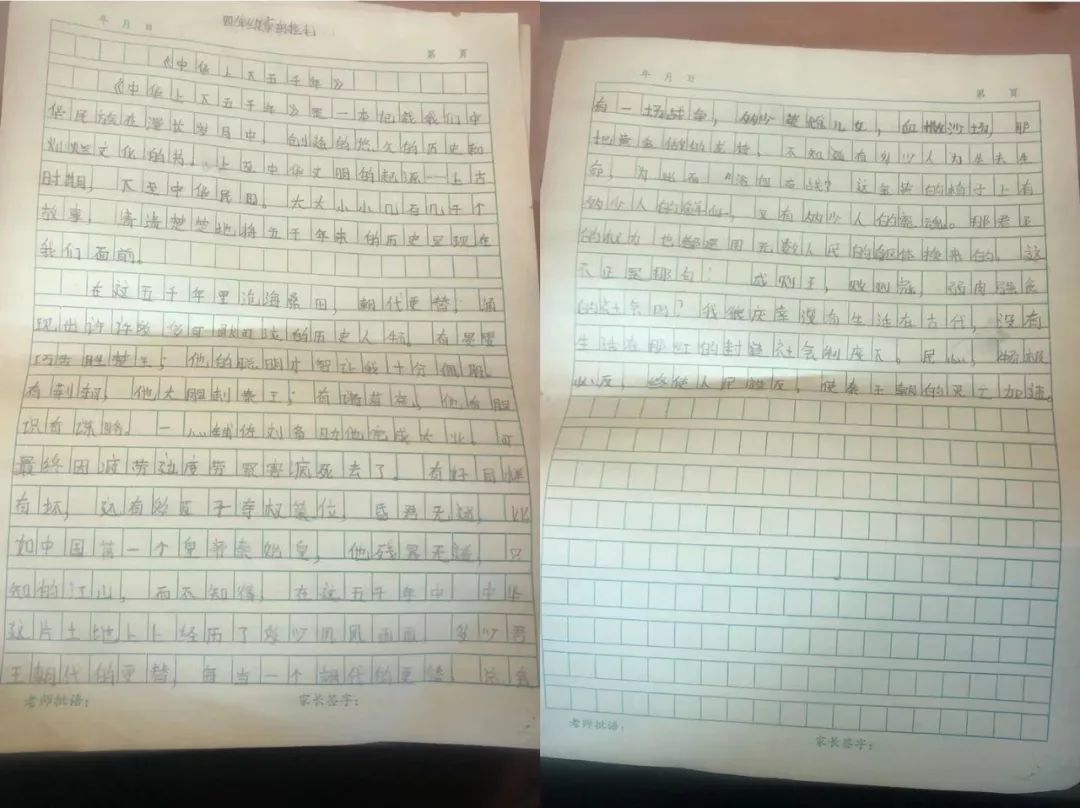 年 月 日
第 页
《中华上下五千年》
《中华上下五千年》是一本记载我们中
华民族在漫长岁月中，创造的悠久的历史和
灿烂文化的书。上至中华文明的起源一上古
时期，下至中华民国。大大小小几百几千个
故事，清清楚楚地将五千年来的历史呈现在
我们面前。
在这五千年里沧海桑田，朝代更替；涌
现出许许多多可歌可泣的历史人物。有晏婴
巧舌胜楚王；他的聪明才智让我十分佩服。
有荆轲，他大胆刺秦王；有诸葛亮，他有胆
识有谋略。一心辅佐刘备助他完成大业。可
最终因疲劳过度劳累病死去了。有好自然
有坏，这有的臣子夺权篡位，昏君无道，比
如中国第一个皇帝秦始皇，他残暴无道，只
知的江山，而不知得，在这五千年中，中华
这片土地上经历了多少风风雨雨，多少君
王朝代的更替，每当一个朝代的更替，总会
老师批语： 家长签字：
年 月 日
第 页
有一场战争，多少英雄儿女，血撒沙场，那
把黄金的龙椅，不知道有多少人为失去生
命，为此而"浴血奋战？这金黄的椅子上有
多少人的鲜血，又有多少人的魂。那君王
的权力也都是用无数人民的躯体换来的，这
不正是那句：成则王，败则寇，弱肉强食
的社会吗？我很庆幸没有生活在古代，没有
生活在那时的封建社会制度下。民心，物极
必反，终使人民造反，使秦王朝的灭亡加速。
老师批语：
家长签字：